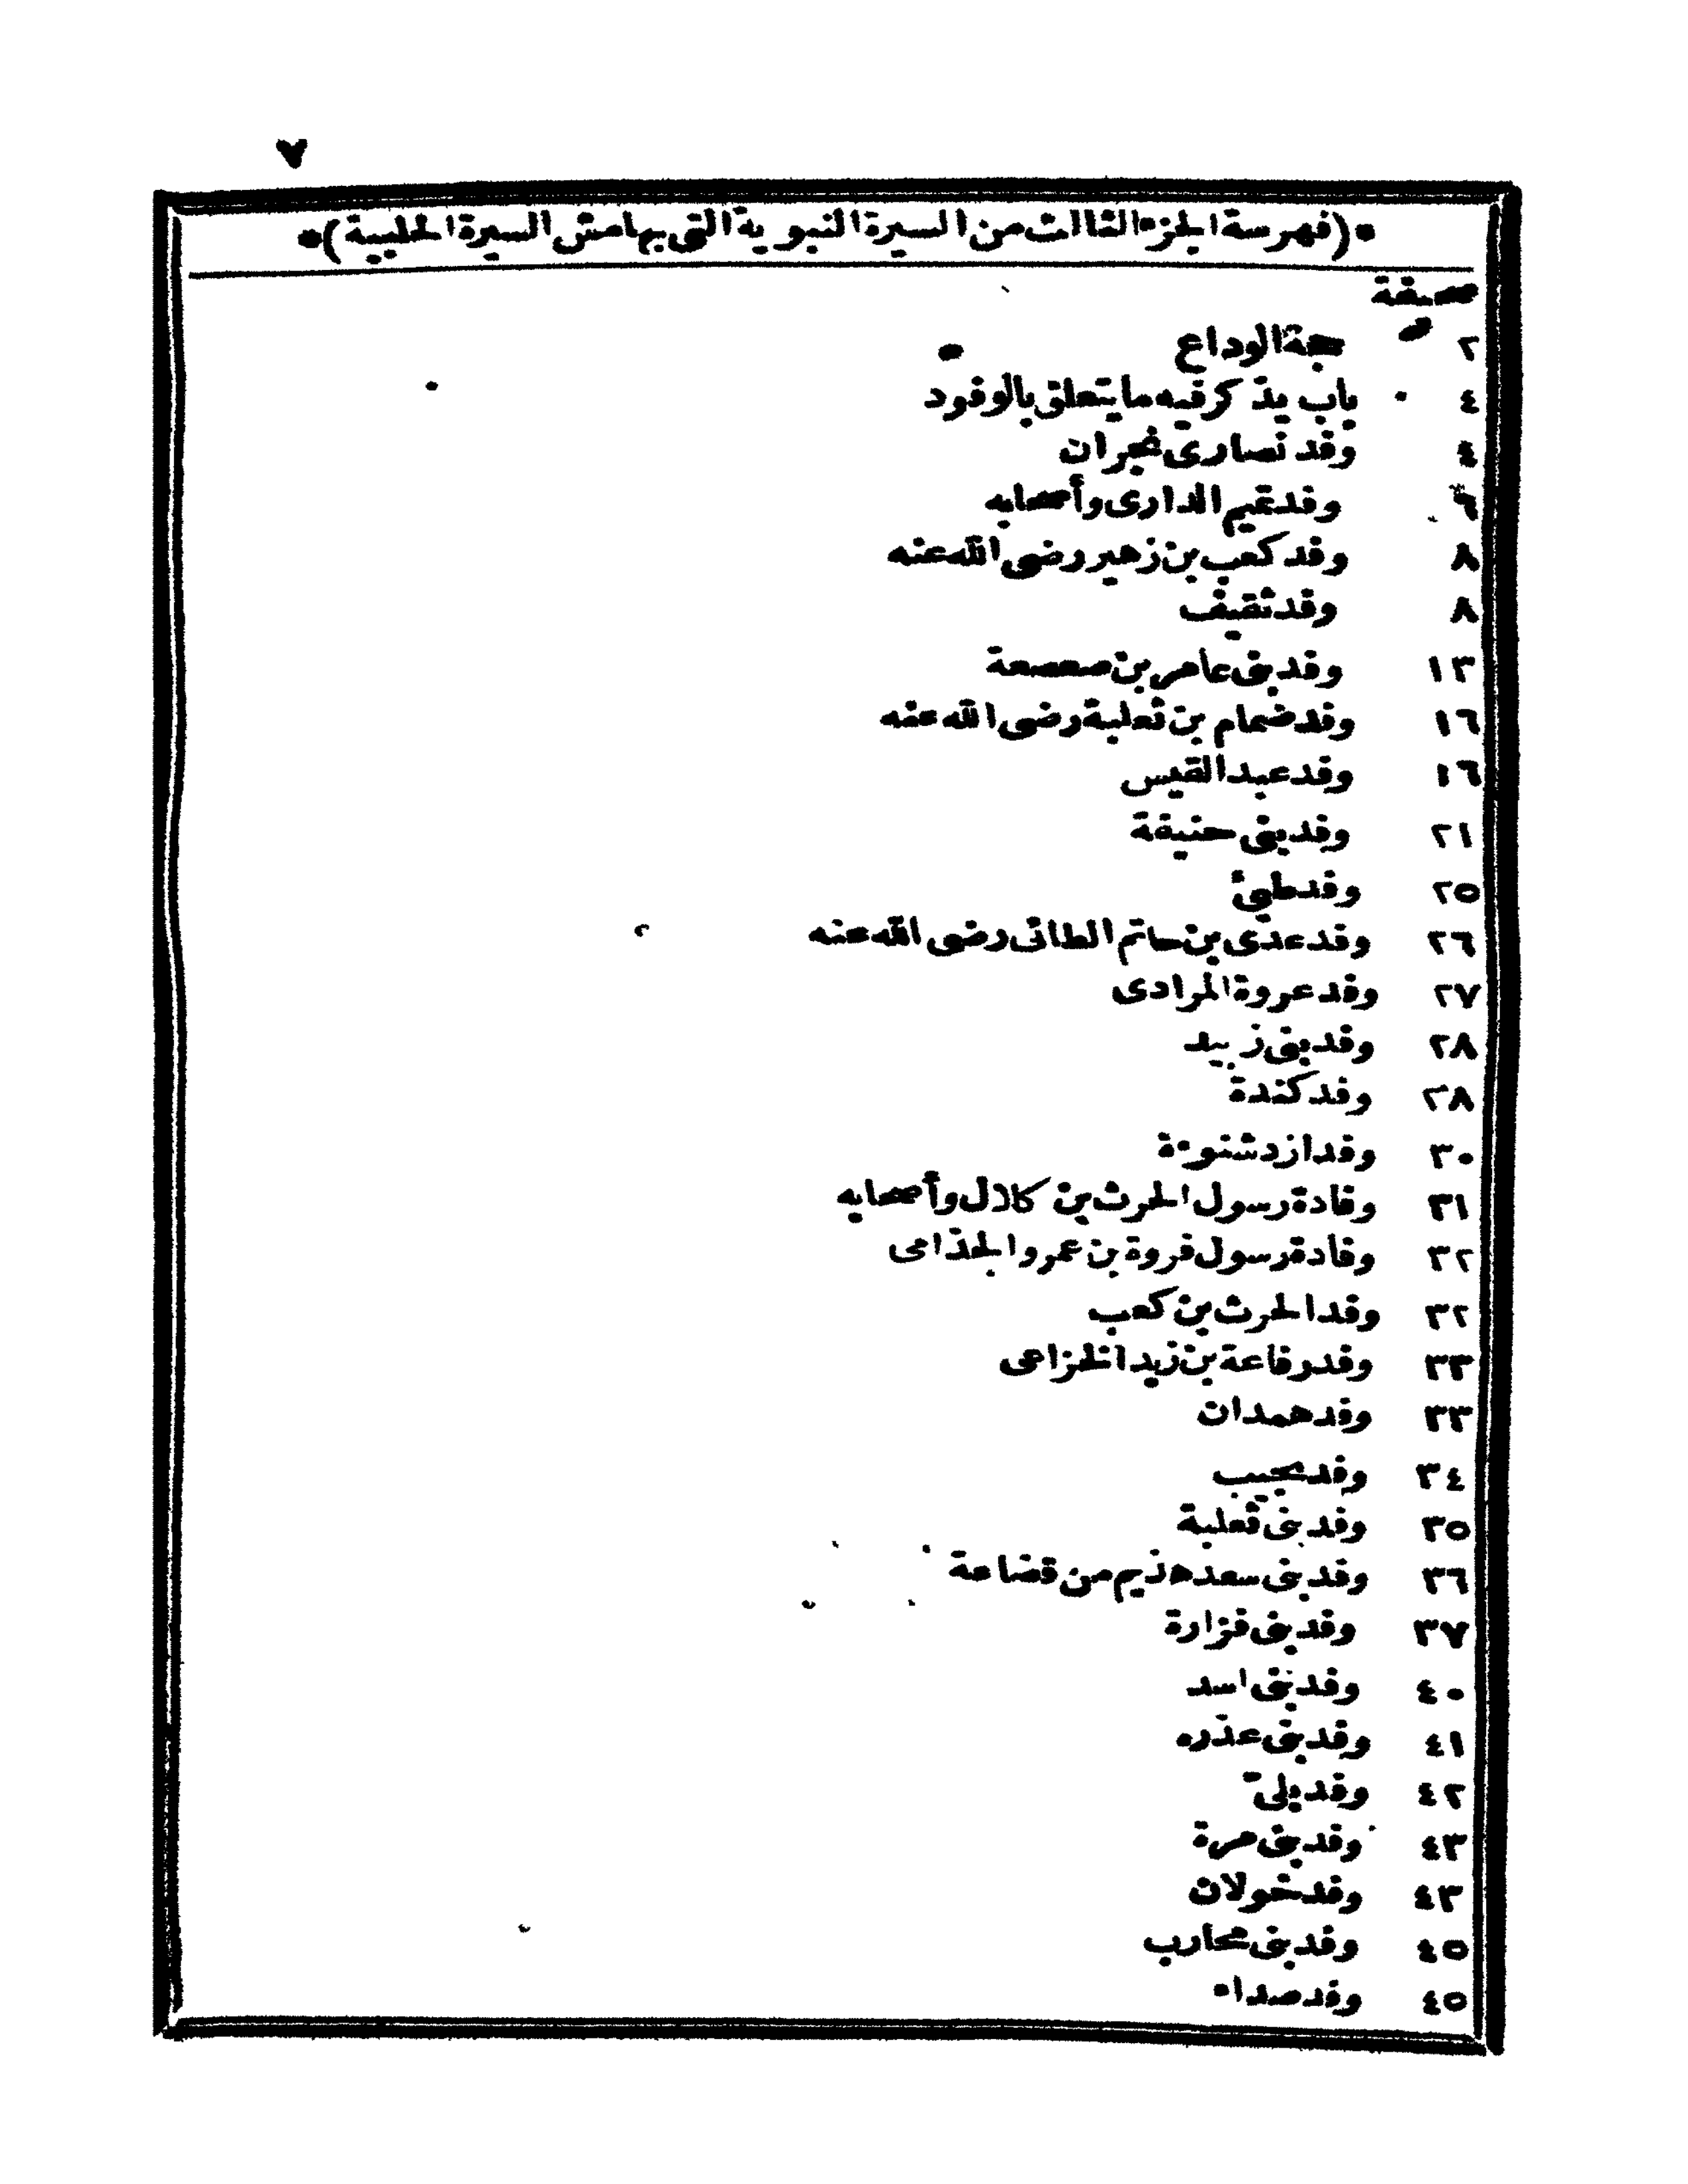 ٧
*(فهرسة الجزء الثالث من السيرة النبوية التى بهامش السيرة الحلبية)*
صحيفة
٢ حجة الوداع
٤ باب يذكر فيه ما يتعلق بالوفود
٤ وفد نصارى نجران
٦ وفد تميم الدارى وأصحابه
٨ وفد كعب بن زهير رضى الله عنه
٨ وفد ثقيف
١٣ وفد بنى عامر بن صعصعة
١٦ وفد ضمام بن ثعلبة رضى الله عنه
١٦ وفد عبد القيس
٢١ وفد بنى حنيفة
٢٥ وفد طيئ
٢٦ وفد عدى بن حاتم الطائى رضى الله عنه
٢٧ وفد عروة المرادى
٢٨ وفد بنى زبيد
٢٨ وفد كندة
٣٠ وفد ازدشنوءة
٣١ وفادة رسول الحرث بن كلال وأصحابه
٣٢ وفادة رسول فروة بن عمرو الجذامى
٣٢ وفد الحرث بن كعب
٣٣ وفد رفاعة بن زيد الخزاعى
٣٣ وفد همدان
٣٤ وفد تجيب
٣٥ وفد بنى ثعلبة
٣٦ وفد بنى سعد هذيم من قضاعة
٣٧ وفد بنى فزارة
٤٠ وفد بنى اسد
٤١ وفد بنى عذره
٤٢ وفد بلى
٤٣ وفد بنى مرة
٤٣ وفد خولان
٤٥ وفد بنى محارب
٤٥ وفد صداء